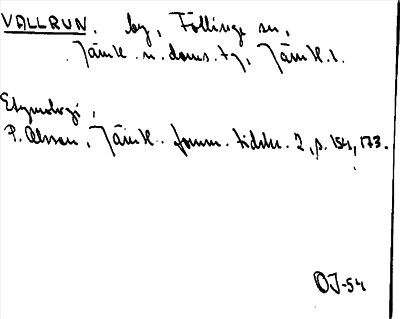 VALLRUN, by, Föllinge sn,
Jämtl. n. doms. tg, Jämtl. l.
Etymologi,
P. Olsson, Jämtl. fornm. tidskr. 2, p. 154, 173.
OJ-54